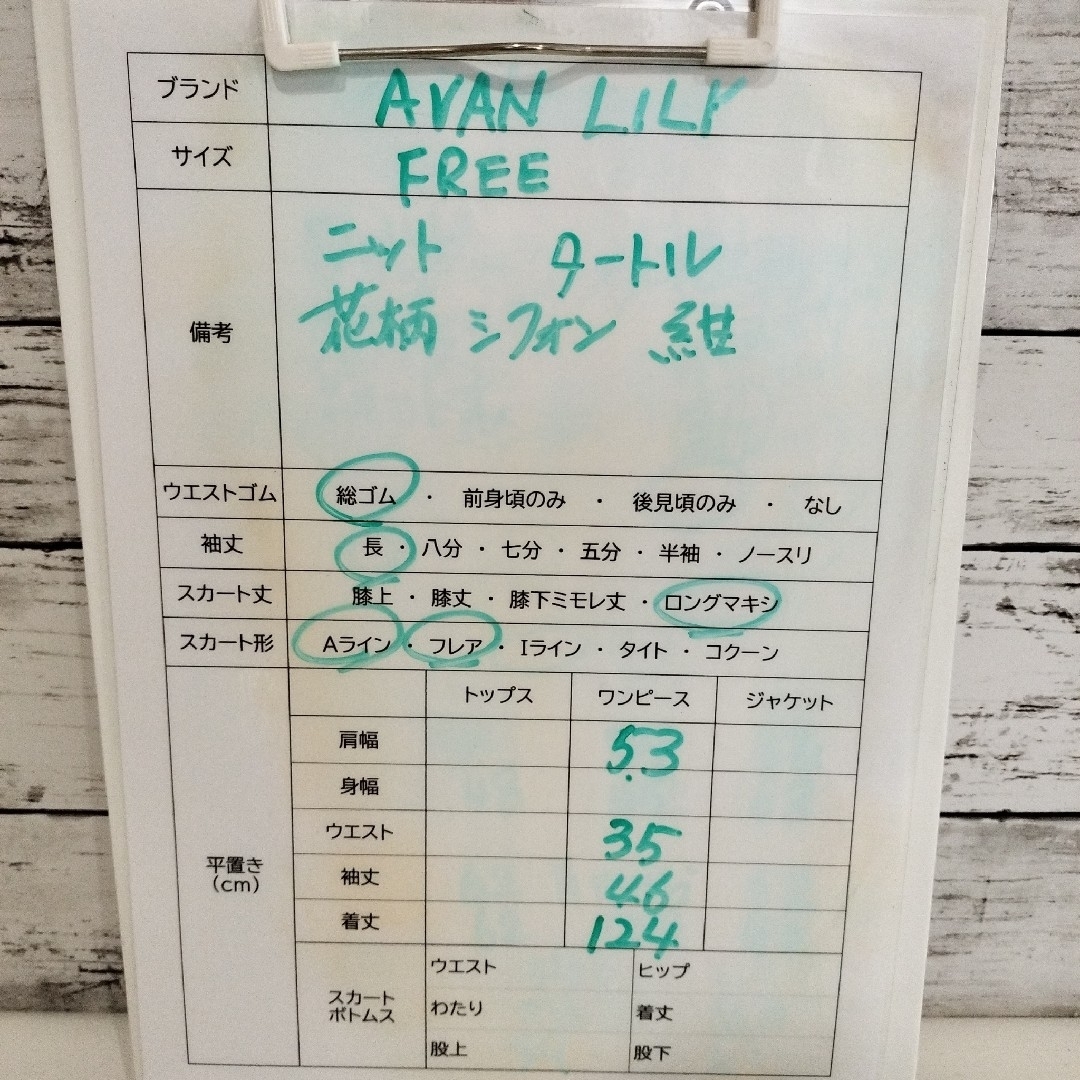 ブランド AVAN LILY
サイズ FREE
備考
ニット タートル
花柄 シフォン 紺
ウエストゴム 総ゴム ・ 前身頃のみ ・ 後見頃のみ ・ なし
袖丈 長 ・ 八分 ・ 七分 ・ 五分 ・ 半袖 ・ ノースリ
スカート丈 膝上 ・ 膝丈 ・ 膝下ミモレ丈 ・ ロングマキシ
スカート形 Aライン ・ フレア ・ Iライン ・ タイト ・ コクーン
トップス ワンピース ジャケット
平置き
(cm)
肩幅 53
身幅
ウエスト 35
袖丈 46
着丈 124
スカート
ボトムス
ウエスト ヒップ
わたり 着丈
股上 股下